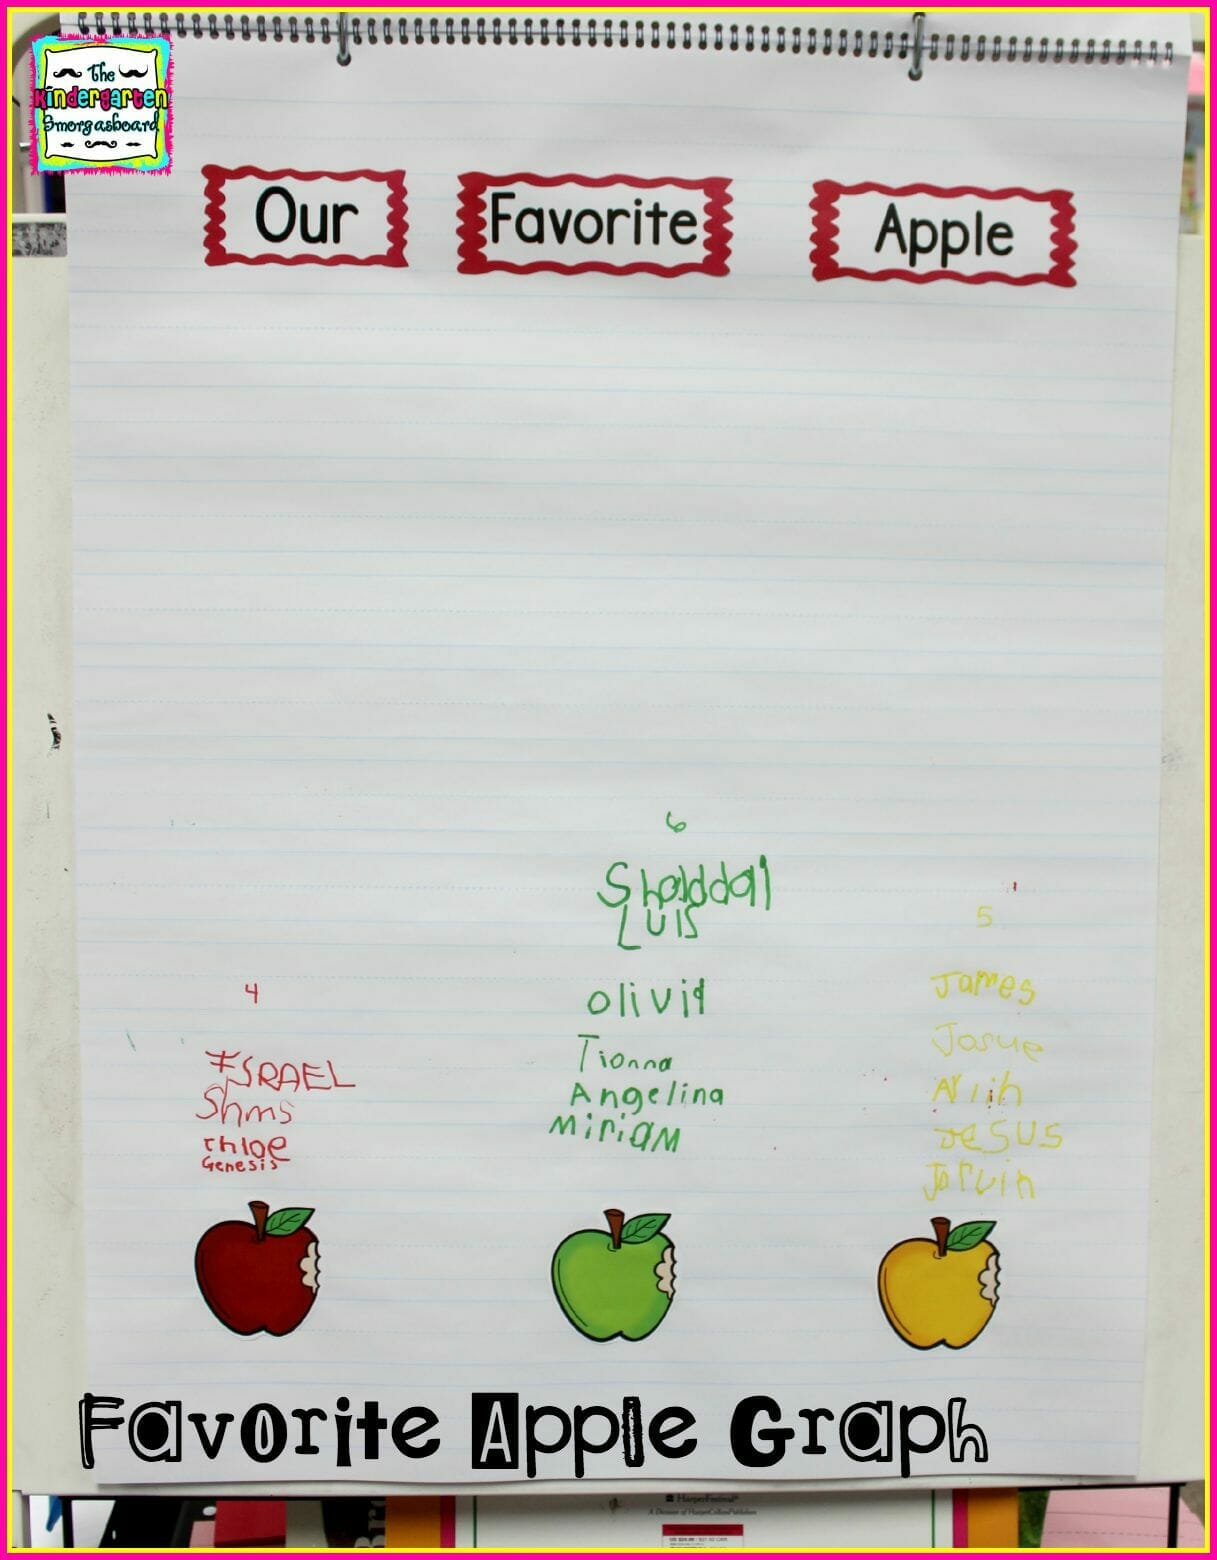 The
Kindergarten
Smorgasboard
Our Favorite Apple
6
Shaddai
Luis
5
olivia
James
4
Tionna
Josue
ISRAEL
Angelina
Shms
Miriam
Jesus
chloe
Genesis
Jarvin
Favorite Apple Graph
HarperFestival
A Division of HarperCollinsPublishers